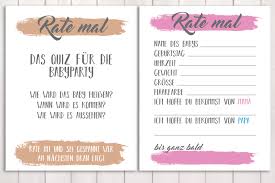 Rate mal
DAS QUIZ FÜR DIE
BABYPARTY
WIE WIRD DAS BABY HEIßEN?
WANN WIRD ES KOMMEN?
WIE WIRD ES AUSSEHEN?
RATE MIT UND SEI GESPANNT WER
AM NÄCHSTEN DRAN LIEGT
Rate mal
NAME DES BABYS
GEBURTSTAG
UHRZEIT
GEWICHT
GRÖSSE
HAARFARBE
ICH HOFFE DU BEKOMMST VON MAMA
ICH HOFFE DU BEKOMMST VON PAPA
bis ganz bald